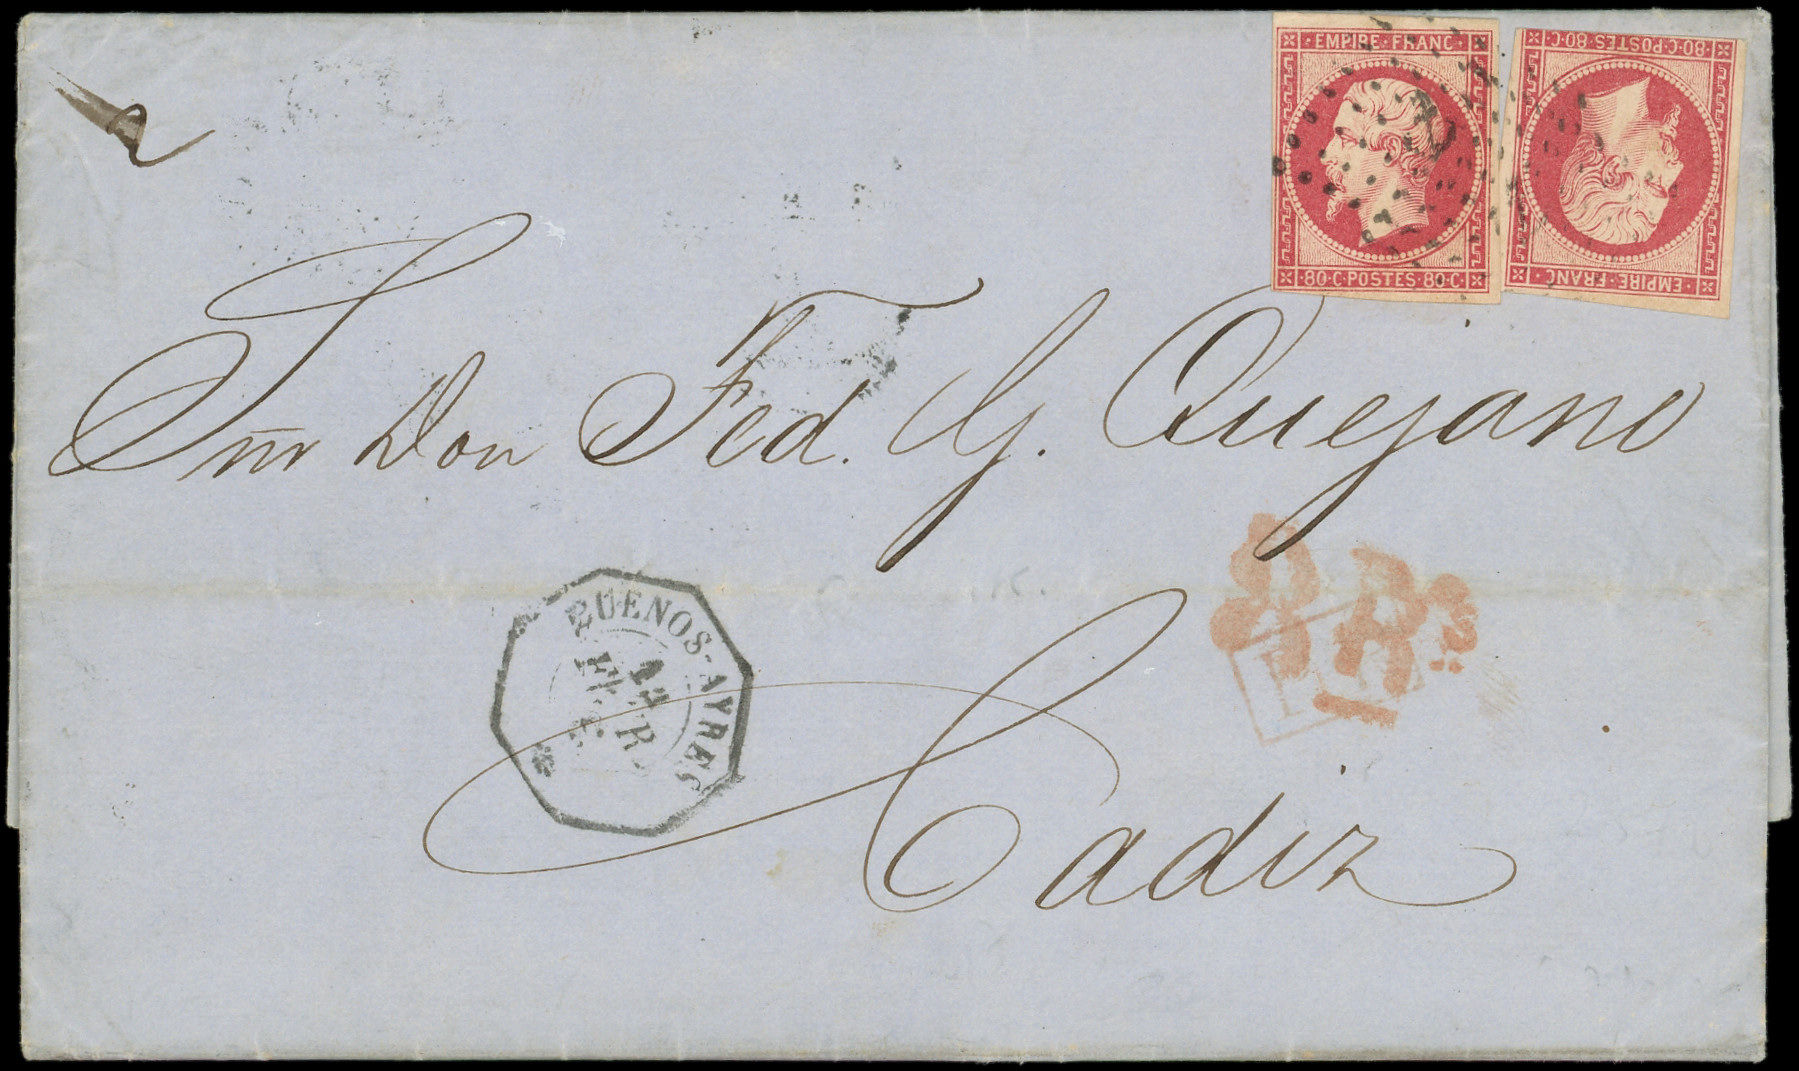 2
EMPIRE · FRANC ·
· 80 · C · POSTES · 80 · C ·
· 80 · C · POSTES · 80 · C ·
EMPIRE · FRANC ·
Sñr Don Fed. G. Quejano
8 Rs
BUENOS-AYRES
FEVR.
Cadiz